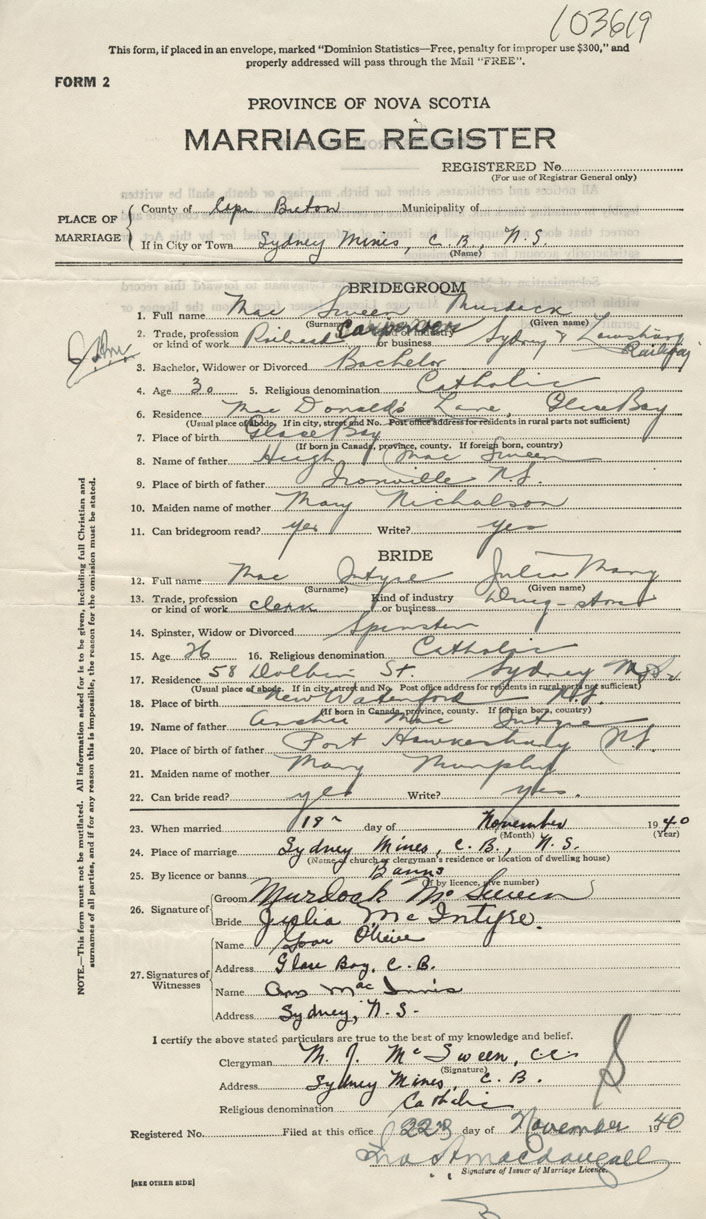 103619
This form, if placed in an envelope, marked "Dominion Statistics—Free, penalty for improper use $300," and
properly addressed will pass through the Mail "FREE".
FORM 2
PROVINCE OF NOVA SCOTIA
MARRIAGE REGISTER
REGISTERED No.
(For use of Registrar General only)
PLACE OF MARRIAGE
County of Cape Breton Municipality of
If in City or Town Sydney Mines, C.B., N.S.
(Name)
BRIDEGROOM
1. Full name Mac Sween Murdock
(Surname) (Given name)
2. Trade, profession or kind of work Railroad Carpenter Kind of industry or business Sydney & Louisburg Railway
3. Bachelor, Widower or Divorced Bachelor
4. Age 30 5. Religious denomination Catholic
6. Residence Mac Donald's Lane, Glace Bay
(Usual place of abode. If in city, street and No. Post office address for residents in rural parts not sufficient)
7. Place of birth Glace Bay
(If born in Canada, province, county. If foreign born, country)
8. Name of father Hugh Mac Sween
9. Place of birth of father Ironville N.S.
10. Maiden name of mother Mary Nicholson
11. Can bridegroom read? yes Write? yes
BRIDE
12. Full name Mac Intyre Julia Mary
(Surname) (Given name)
13. Trade, profession or kind of work clerk Kind of industry or business Drug-store
14. Spinster, Widow or Divorced Spinster
15. Age 26 16. Religious denomination Catholic
17. Residence 58 Dolbin St. Sydney
(Usual place of abode. If in city, street and No. Post office address for residents in rural parts not sufficient)
18. Place of birth New Waterford N.S.
(If born in Canada, province, county. If foreign born, country)
19. Name of father Archie Mac Intyre
20. Place of birth of father Port Hawkesbury N.S.
21. Maiden name of mother Mary Murphy
22. Can bride read? yes Write? yes.
23. When married 18 day of November 1940
(Month) (Year)
24. Place of marriage Sydney Mines, C.B., N.S.
(Name of church or clergyman's residence or location of dwelling house)
25. By licence or banns Banns
(If by licence, give number)
26. Signature of
Groom Murdock McSween
Bride Julia McIntyre.
27. Signatures of Witnesses
Name
Address Glace Bay, C.B.
Name Ann MacInnis
Address Sydney, N.S.
I certify the above stated particulars are true to the best of my knowledge and belief.
Clergyman M. J. McSween, cc
(Signature)
Address Sydney Mines, C.B.
Religious denomination Catholic
Registered No. Filed at this office 22 day of November 1940
Jno A Macdougall
Signature of Issuer of Marriage Licence.
[SEE OTHER SIDE]
NOTE.—This form must not be mutilated. All information asked for is to be given, including full Christian and
surnames of all parties, and if for any reason this is impossible, the reason for the omission must be stated.